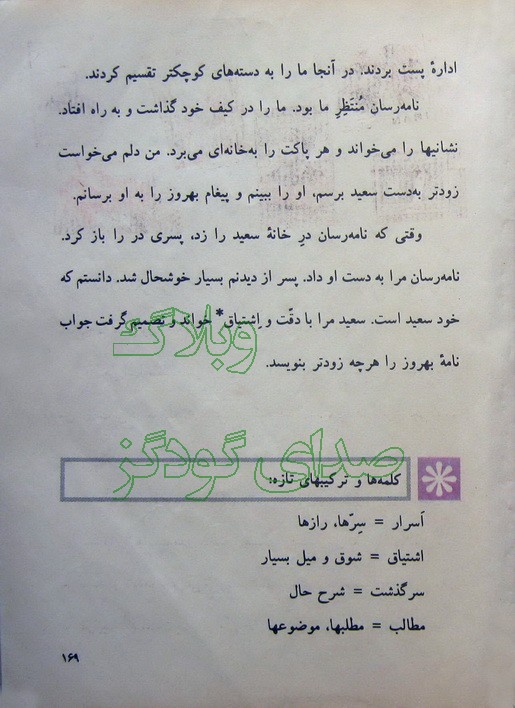 ادارهٔ پست بردند. در آنجا ما را به دسته‌های کوچکتر تقسیم کردند.
نامه‌رسان مُنتَظِرِ ما بود. ما را در کیف خود گذاشت و به راه افتاد.
نشانیها را می‌خواند و هر پاکت را به‌خانه‌ای می‌برد. من دلم می‌خواست
زودتر به‌دست سعید برسم، او را ببینم و پیغام بهروز را به او برسانم.
وقتی که نامه‌رسان درِ خانهٔ سعید را زد، پسری در را باز کرد.
نامه‌رسان مرا به دست او داد. پسر از دیدنم بسیار خوشحال شد. دانستم که
خود سعید است. سعید مرا با دقّت و اِشتیاق* خواند و تصمیم گرفت جواب
نامهٔ بهروز را هرچه زودتر بنویسد.
وبلاگ
صدای گودگز
کلمه‌ها و ترکیبهای تازه:
اَسرار = سِرّها، رازها
اشتیاق = شوق و میل بسیار
سرگذشت = شرح حال
مطالب = مطلبها، موضوعها
۱۶۹